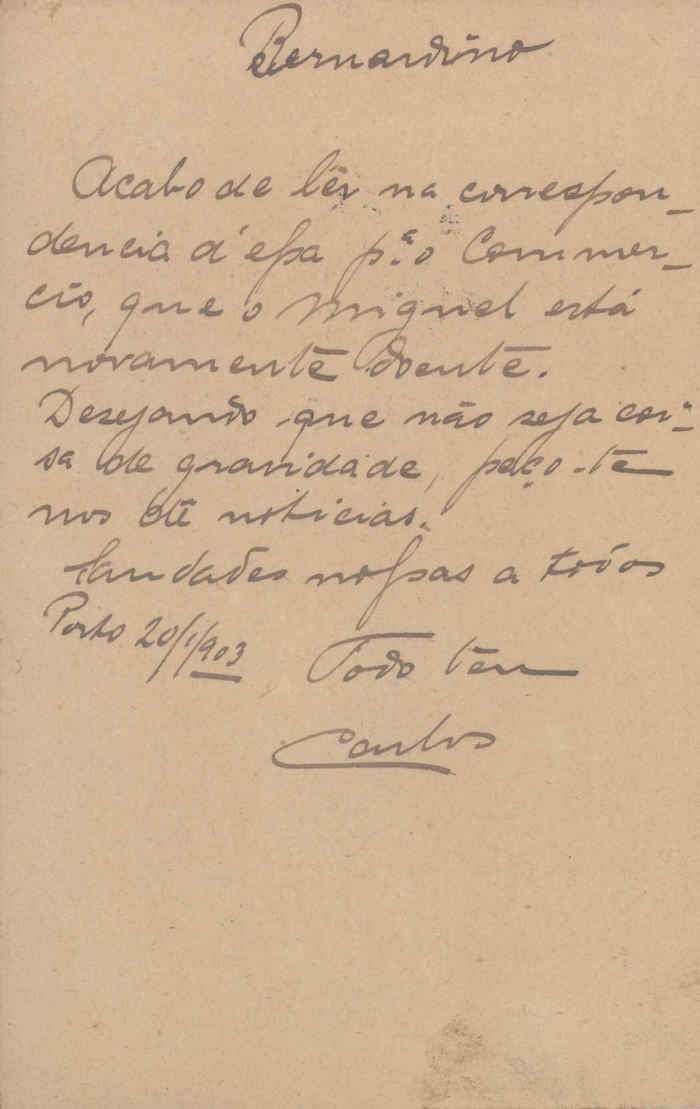 Bernardino
Acabo de lêr na correspon-
dencia d'essa p.ª o Commer-
cio, que o Miguel está
novamente doente.
Desejando que não seja coi-
sa de gravidade, peço-te
nos dê noticias.
Saudades nossas a todos
Porto 20/1/903 Todo teu
Carlos